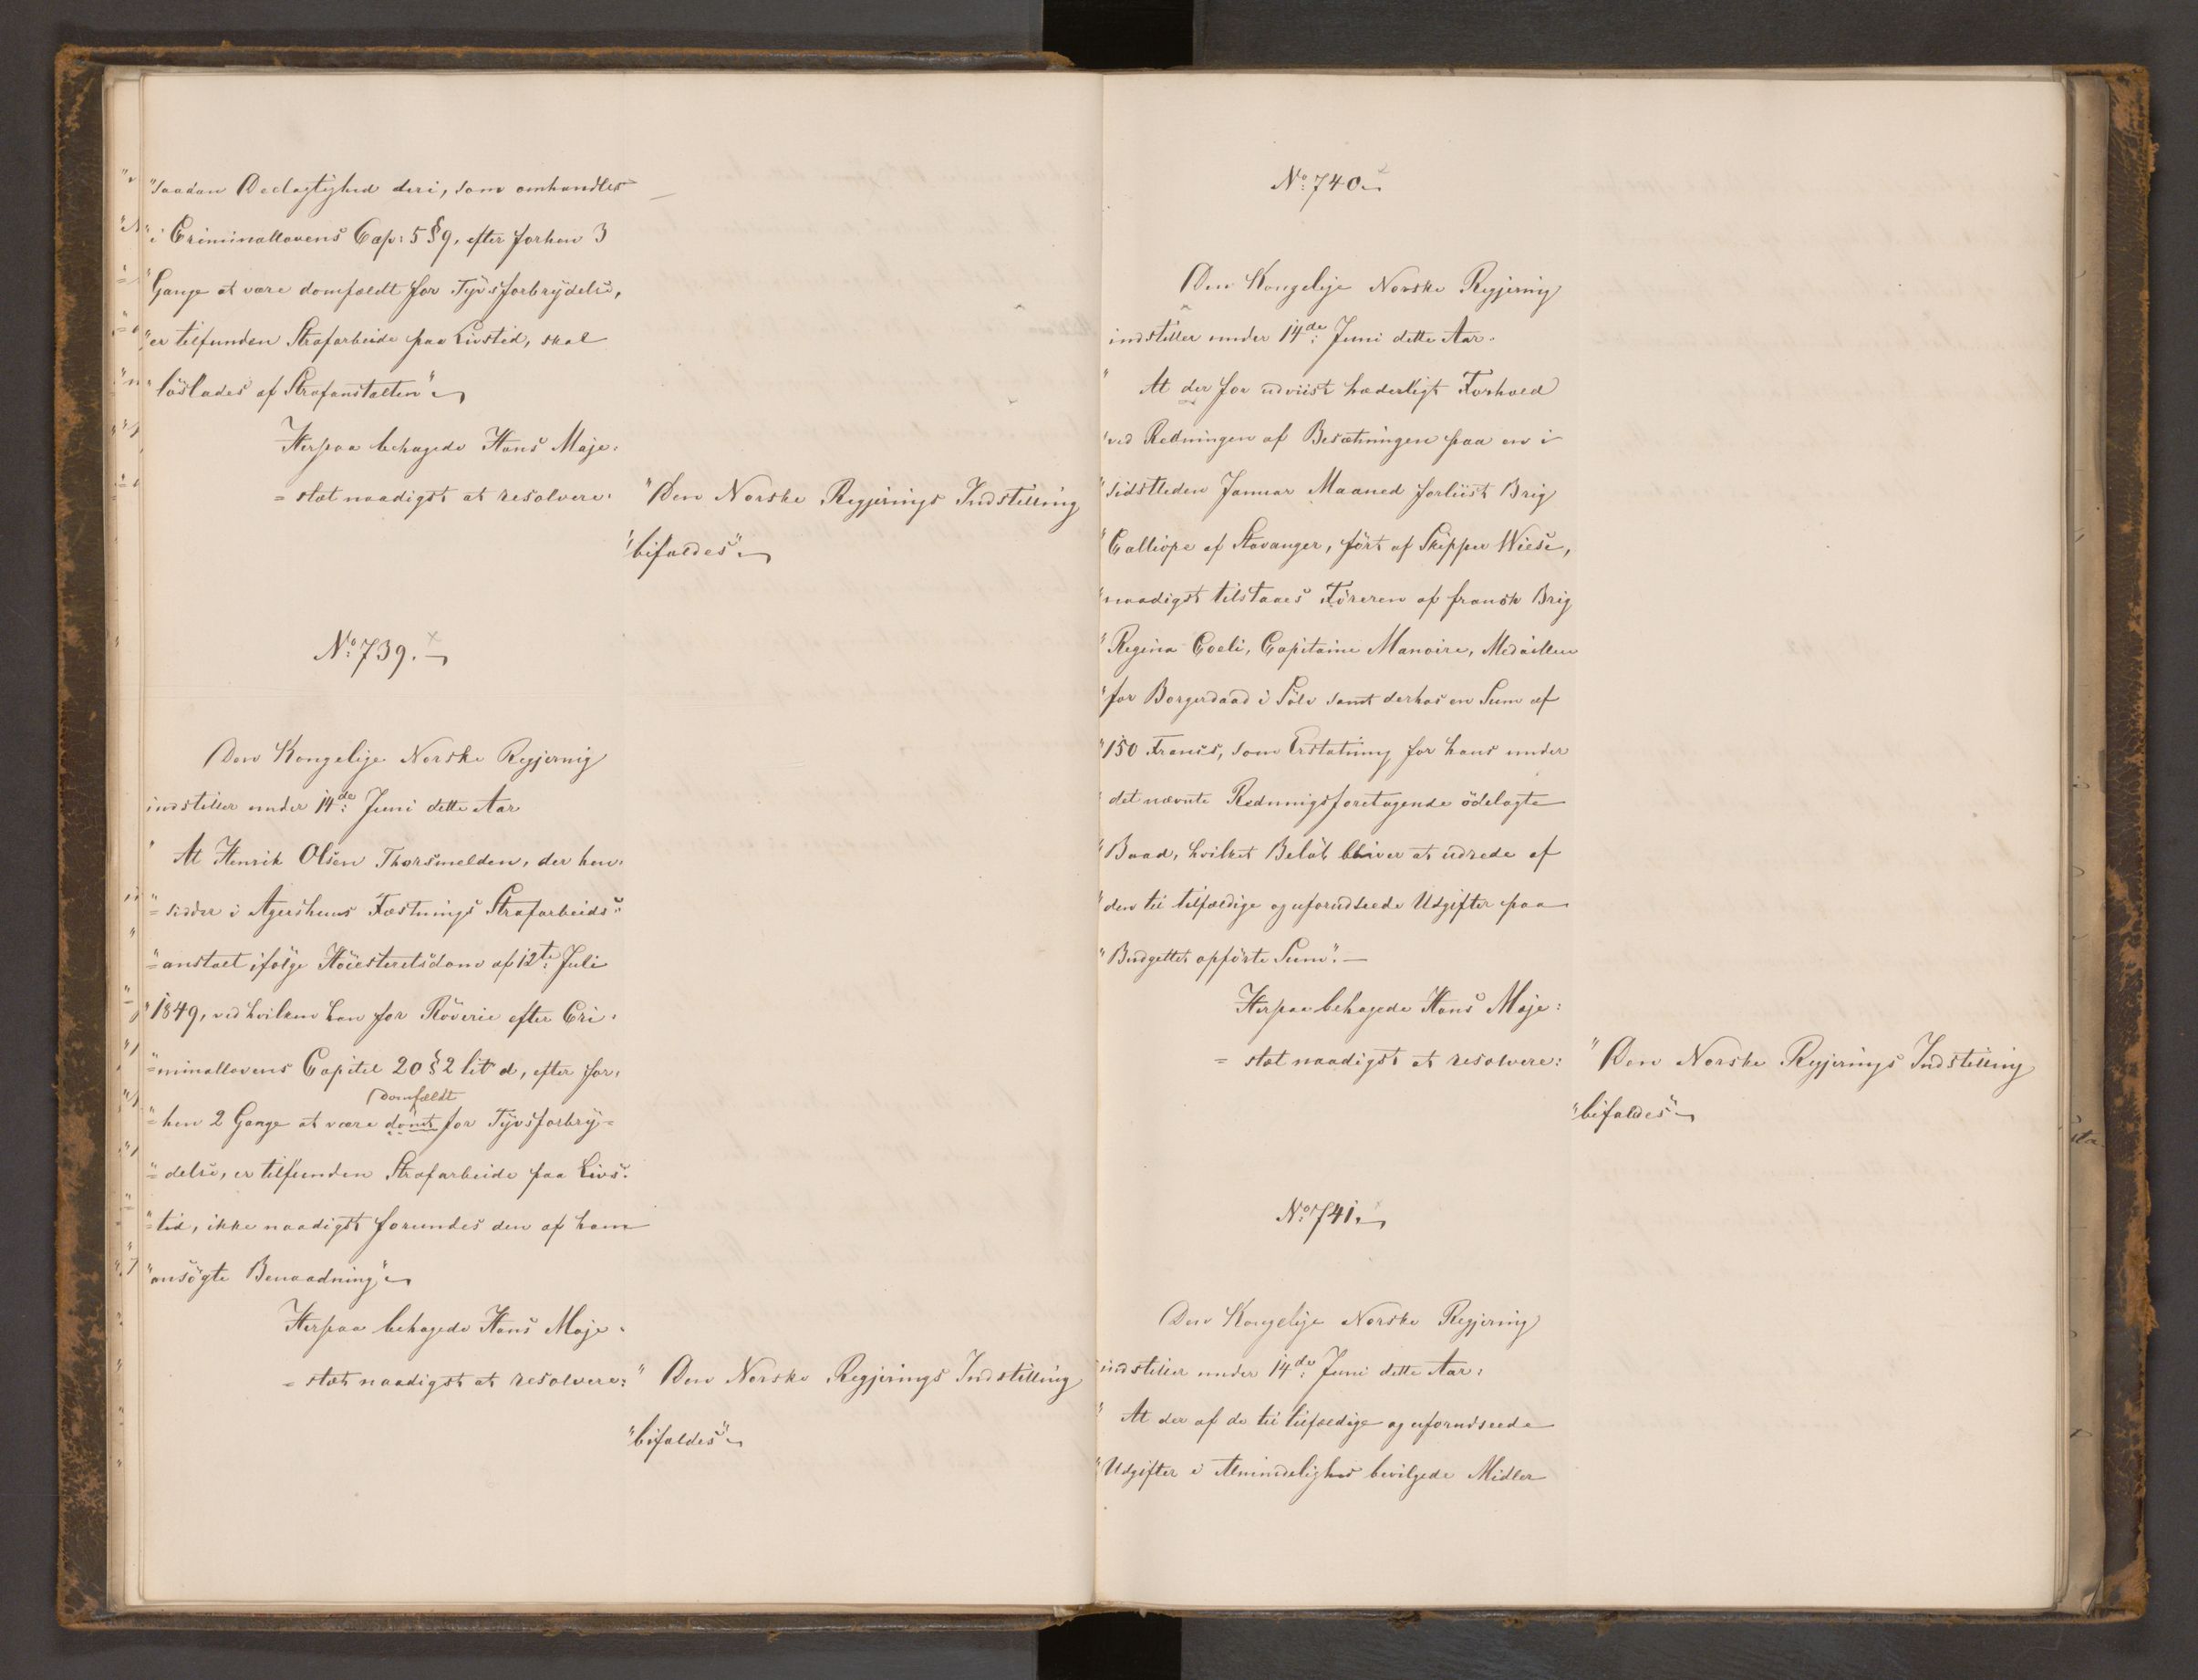 "saadan Deelagtighed deri, som omhandles
"i Criminallovens Cap: 5 § 9, efter forhen 3
"Gange at være domfældt for Tyvsforbrydelse,
"er tilfunden Strafarbeide paa Livstid, skal
"löslades af Strafanstalten"
Herpaa behagede Hans Maje-
=stæt naadigst at resolvere:
"Den Norske Regjerings Indstilling
"bifaldes"
No: 739.
Den Kongelige Norske Regjering
indstiller under 14de: Juni dette Aar
" At Henrik Olsen Thorsmelden, der hen-
"=sidder i Agershuus Fæstnings Strafarbeids-
"=anstalt ifölge Höiesteretsdom af 12te: Juli
"1849, ved hvilken han for Röverie efter Cri-
"=minallovens Capitel 20 § 2 lit d, efter for-
domfældt
"=hen 2 Gange at være dömt for Tyvsforbry=
"=delse, er tilfunden Strafarbeide paa Livs-
"=tid, ikke naadigst forundes den af ham
"ansögte Benaadning"
Herpaa behagede Hans Maje-
=stæt naadigst at resolvere:
"Den Norske Regjerings Indstilling
"bifaldes"
No: 740.
Den Kongelige Norske Regjering
indstiller under 14de: Juni dette Aar.
" At der for udviist hæderligt Forhold
"ved Redningen af Besætningen paa en i
"sidstleden Januar Maaned forliist Brig
"Calliope af Stavanger, fört af Skipper Wiese,
"naadigst tilstaaes Föreren af fransk Brig
"Regina Coeli, Capitaine Manoire, Medaillen
"for Borgerdaad i Sölv samt derhos en Sum af
"150 Francs, som Erstatning for hans under
"det nævnte Redningsforetagende ödelagte
"Baad, hvilket Belöb bliver at udrede af
"den til tilfældige og uforudseede Udgifter paa
"Budgettet opförte Sum".
Herpaa behagede Hans Maje:
=stæt naadigst at resolvere:
"Den Norske Regjerings Indstilling
"bifaldes"
No: 741.
Den Kongelige Norske Regjering
indstiller under 14de: Juni dette Aar:
" At der af de til tilfældige og uforudseede
"Udgifter i Almindelighed bevilgede Midler